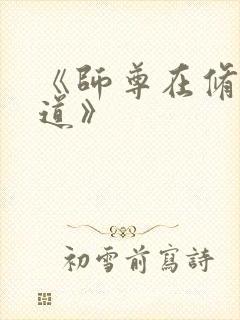 《師尊在脩
道》
初雪前寫詩